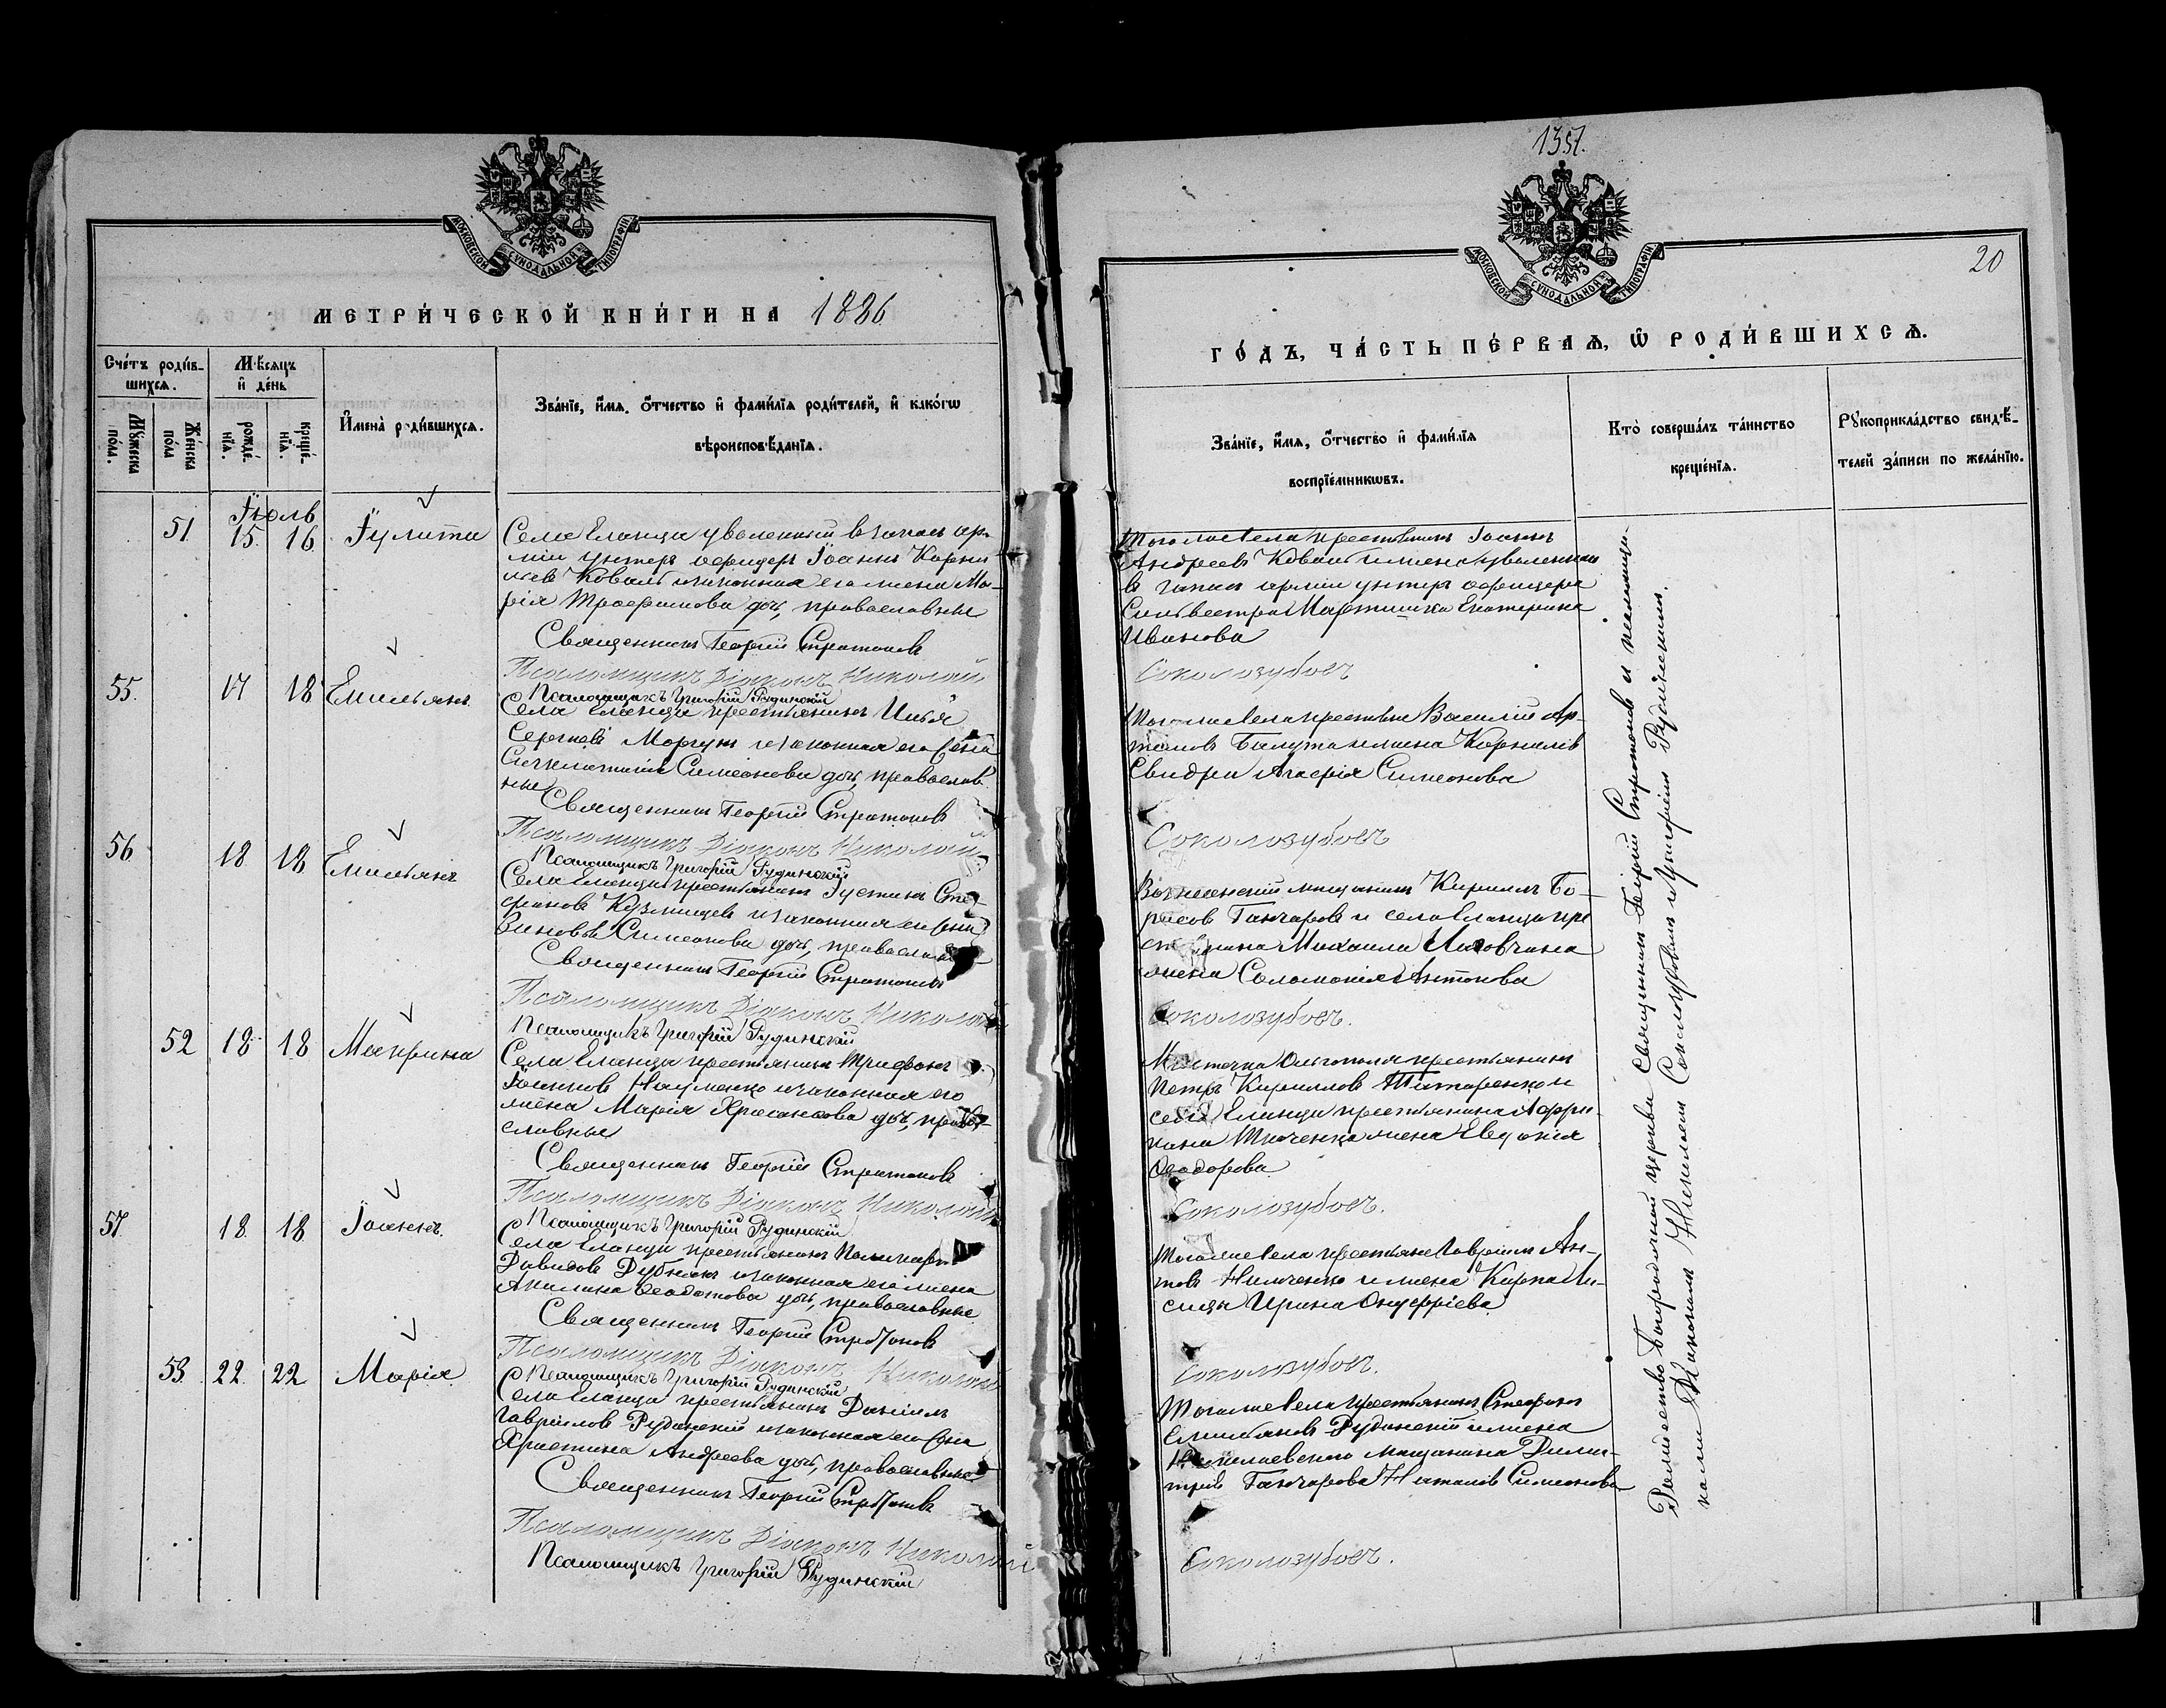 1357.
20
МОСКОВСКОЙ СѴНОДАЛЬНОЙ ТИПОГРАФІИ
МЕТРИ́ЧЕСКОЙ КНИ́ГИ НА 1886
Сче́тъ роди́в-
шихсѧ.
Мѣ́сѧцъ
и҆ де́нь
Мꙋ́жеска
по́ла.
Же́нска
по́ла
рожде́-
нїѧ.
креще́-
нїѧ.
И҆мена̀ роди́вшихсѧ.
Зва́нїе, и҆́мѧ, ѻ҆́тчество и҆ фами́лїѧ роди́телей, и҆ како́гѡ
вѣроисповѣ́данїѧ.
51 Іюль 15. 16 Іулита
Села Еланца уволенный в запас ар-
міи унтеръ офицеръ Іоаннъ Корни-
ліев Коваль и законная его жена Ма-
рія Трофимова дочь, православные
Священникъ Георгій Стратонов
Псаломщикъ Діаконъ Николай
Псаломщикъ Григорій Рудинскій
55. 17 18 Емельянъ
Села Еланца крестьянинъ Илья
Сергіевъ Моргун и законная его жена
Синклитикія Симеонова дочь, православ
ные
Священникъ Георгій Стратонов
Псаломщикъ Діаконъ Николай
Псаломщикъ Григорій Рудинскій
56 18 18 Емельянъ
Села Еланца крестьянинъ Іустинъ Сте-
фановъ и законная его жена
Зиновія Симеонова дочь, православные
Священникъ Георгій Стратонов
Псаломщикъ Діаконъ Николай
Псаломщикъ Григорій Рудинскій
52 18 18 Макрина
Села Еланца крестьянинъ Трифонъ
Іоаннов Науменко и законная его
жена Марія Хрисанфова дочь, право-
славные
Священникъ Георгій Стратонов
Псаломщикъ Діаконъ Николай
Псаломщикъ Григорій Рудинскій
57. 18. 18. Іоаннъ.
Села Еланца крестьянинъ Поликарпъ
Давидовъ Дубнякъ и законная его жена
Акилина Феодотова дочь, православные
Священникъ Георгій Стратонов
Псаломщикъ Діаконъ Николай
Псаломщикъ Григорій Рудинскій
53. 22. 22 Марія
Села Еланца крестьянинъ Даніилъ
Гавріиловъ Рудинскій и законная его жена
Христина Андреева дочь, православные
Священникъ Георгій Стратоновъ
Псаломщикъ Діаконъ Николай
Псаломщикъ Григорій Рудинскій
МОСКОВСКОЙ СѴНОДАЛЬНОЙ ТИПОГРАФІИ
ГО́ДЪ, ЧА́СТЬ ПЕ́РВАѦ, Ѡ҆ РОДИ́ВШИХСѦ.
Зва́нїе, и҆́мѧ, ѻ҆́тчество и҆ фами́лїѧ
воспрїе́мникѡвъ.
Кто̀ соверша́лъ та́инство
креще́нїѧ.
Рꙋкоприкла́дство свидѣ́-
телей за́писи по жела́нїю.
Того же села крестьянинъ Іоаннъ
Андреевъ Коваль и жена уволеннаго
в запас арміи унтеръ офицера
Сильвестра Мартынюка Екатерина
Иванова
Соколозубовъ
Того же села крестьяне Василій Ар-
темов и жена Корнилія
Свидры Агафія Симеонова
Соколозубовъ
Вознесенскій мещанинъ Кириллъ Бо-
рисов Ганчаров и села Еланца кре
стьянина Михаила
жена Соломонія Антонова
Соколозубовъ.
Местечка Ольгополя крестьянинъ
Петръ Кириллов Титаренко и
села Еланца крестьянина Афри-
кана Ткаченка жена Евдокія
Феодорова
Соколозубовъ.
Того же села крестьяне Гавріилъ Ан-
тов и жена Карпа Ли-
сицы Ирина Онуфріева
Соколозубовъ.
Того же села крестьянинъ Стефанъ
Емельяновъ Рудинскій и жена
Николаевского мещанина Дими-
трія Ганчарова Наталія Симеонова
Соколозубовъ.
Рождество Богородичной церкви Священникъ Георгій Стратонов и псаломщи-
ками Діаконом Николаемъ Соколозубовымъ и Григоріем Рудинскимъ.